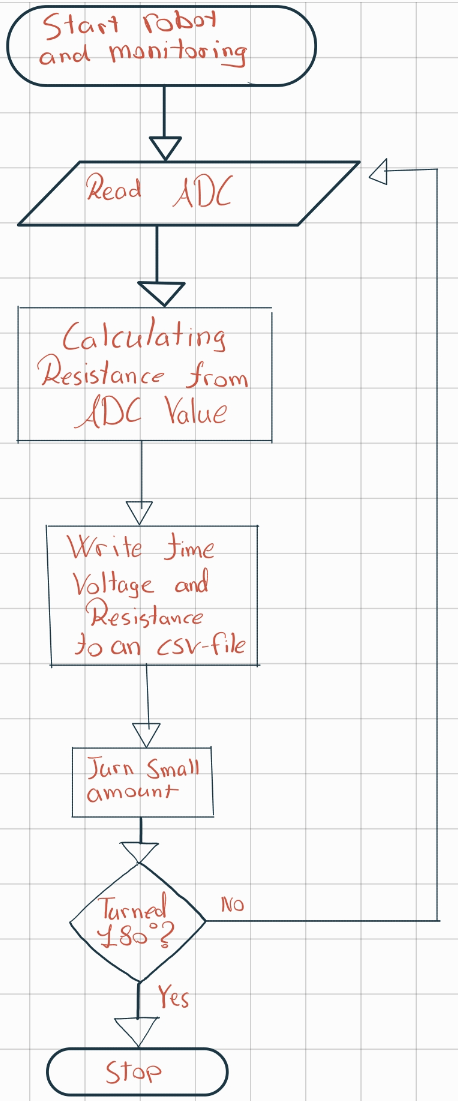 Start robot
and monitoring
Read ADC
Calculating
Resistance from
ADC Value
Write time
Voltage and
Resistance
to an csv-file
Turn Small
amount
Turned
180°?
No
Yes
Stop